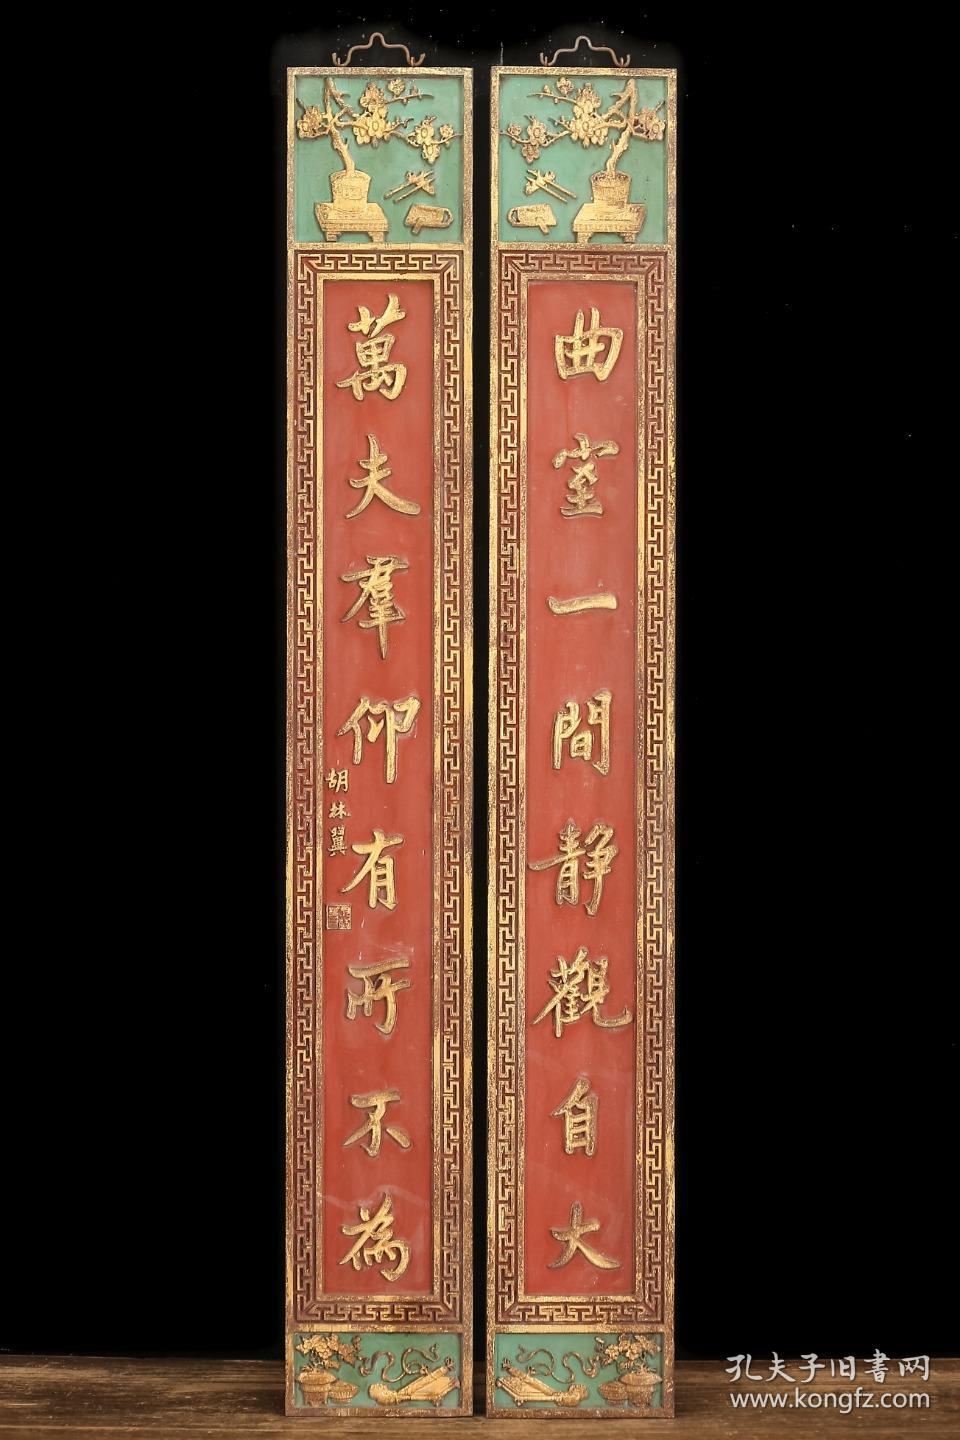 曲室一間静觀自大
萬夫羣仰有所不為
胡林翼
孔夫子旧書网
www.kongfz.com